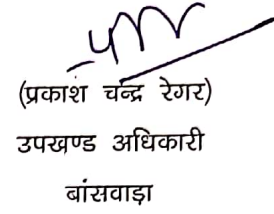 (प्रकाश चन्द्र रेगर)
उपखण्ड अधिकारी
बांसवाड़ा